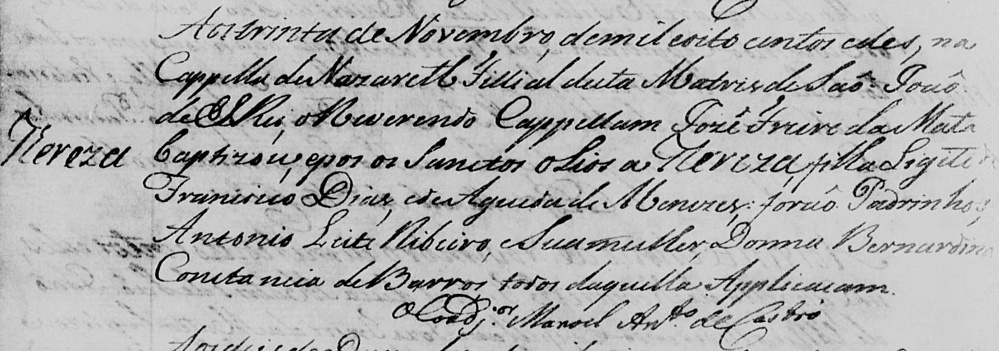 Aos trinta de Novembro, de mil eoito centos edes, na
Cappella de Nazareth Fillial desta Matris de Saõ Joaõ
de El Rei, o Reverendo Cappellam José Freire da Mata
Nereza
baptizou, epos os Sanctos oleos a Nereza filha Legiti
Francisco Dias, ede Agueda de Menezes: foraõ Padrinhos,
Antonio Leite Ribeiro, e Sua mulher, Donna Bernardina
Constancia de Barros todos daquella Applicacam.
O Coadj.or Manoel Ant.o de Castro